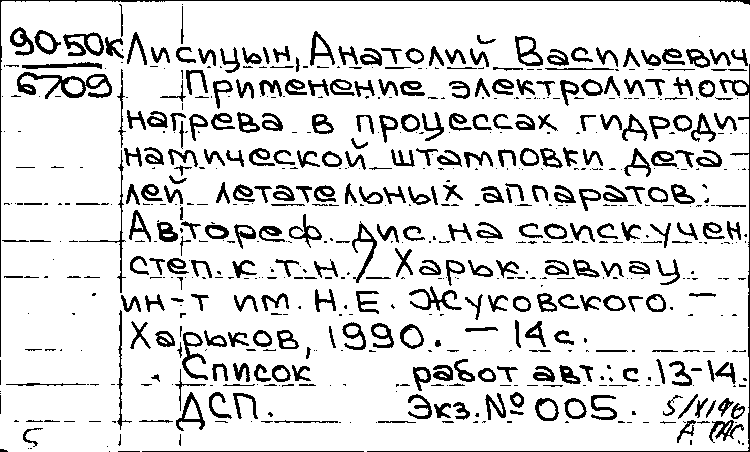 90-50к Лисицын, Анатолий Васильевич
6709 Применение электролитного
нагрева в процессах гидроди-
намической штамповки дета-
лей летательных аппаратов:
Автореф. дис. на соиск. учен.
степ. к.т.н. / Харьк. авиац.
ин-т им. Н.Е. Жуковского. —
Харьков, 1990. — 14 с.
Список работ авт.: с. 13-14.
ДСП. Экз. № 005.